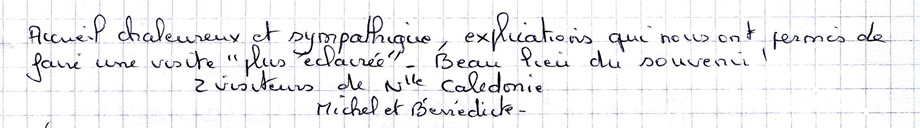 Accueil chaleureux et sympathique, explications qui nous ont permis de
faire une visite "plus éclairée" - Beau lieu du souvenir !
2 visiteurs de Nlle Calédonie
Michel et Bénédicte -